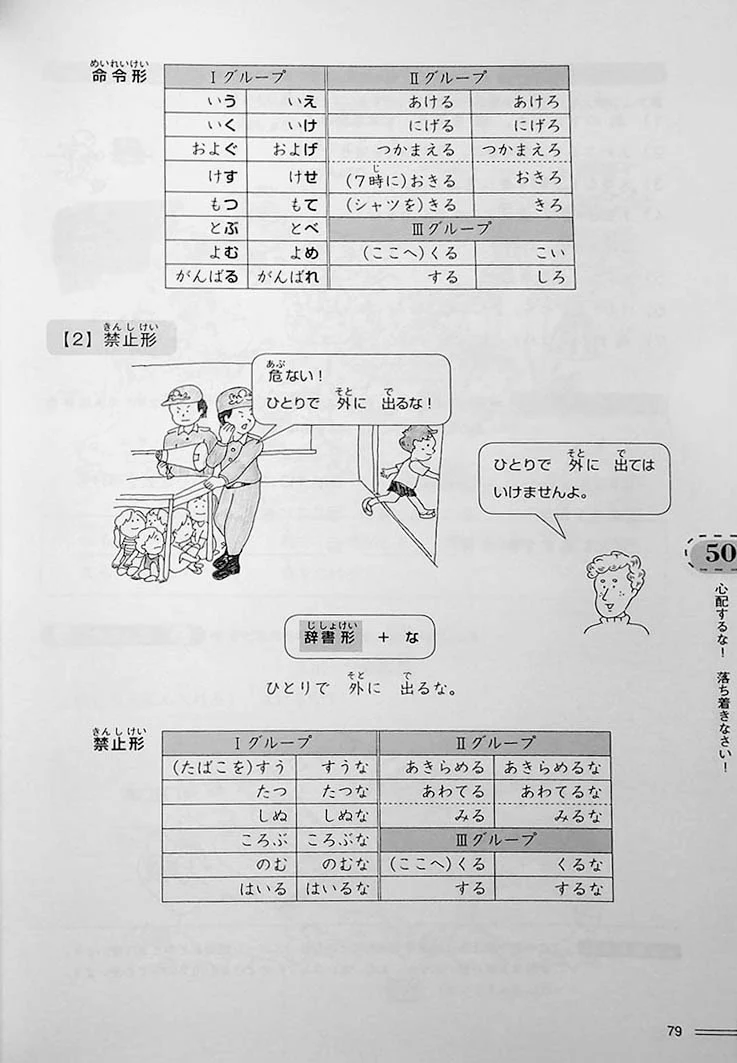 めいれいけい
命令形
Ⅰグループ Ⅱグループ
いう いえ あける あけろ
いく いけ にげる にげろ
およぐ およげ つかまえる つかまえろ
じ
けす けせ (7時に)おきる おきろ
もつ もて (シャツを)きる きろ
とぶ とべ Ⅲグループ
よむ よめ (ここへ)くる こい
がんばる がんばれ する しろ
きんしけい
【2】禁止形
あぶ
危ない!
そと で
ひとりで 外に 出るな!
そと で
ひとりで 外に 出ては
いけませんよ。
50
心配するな! 落ち着きなさい!
じしょけい
辞書形 + な
そと で
ひとりで 外に 出るな。
きんしけい
禁止形
Ⅰグループ Ⅱグループ
(たばこを)すう すうな あきらめる あきらめるな
たつ たつな あわてる あわてるな
しぬ しぬな みる みるな
ころぶ ころぶな Ⅲグループ
のむ のむな (ここへ)くる くるな
はいる はいるな する するな
79